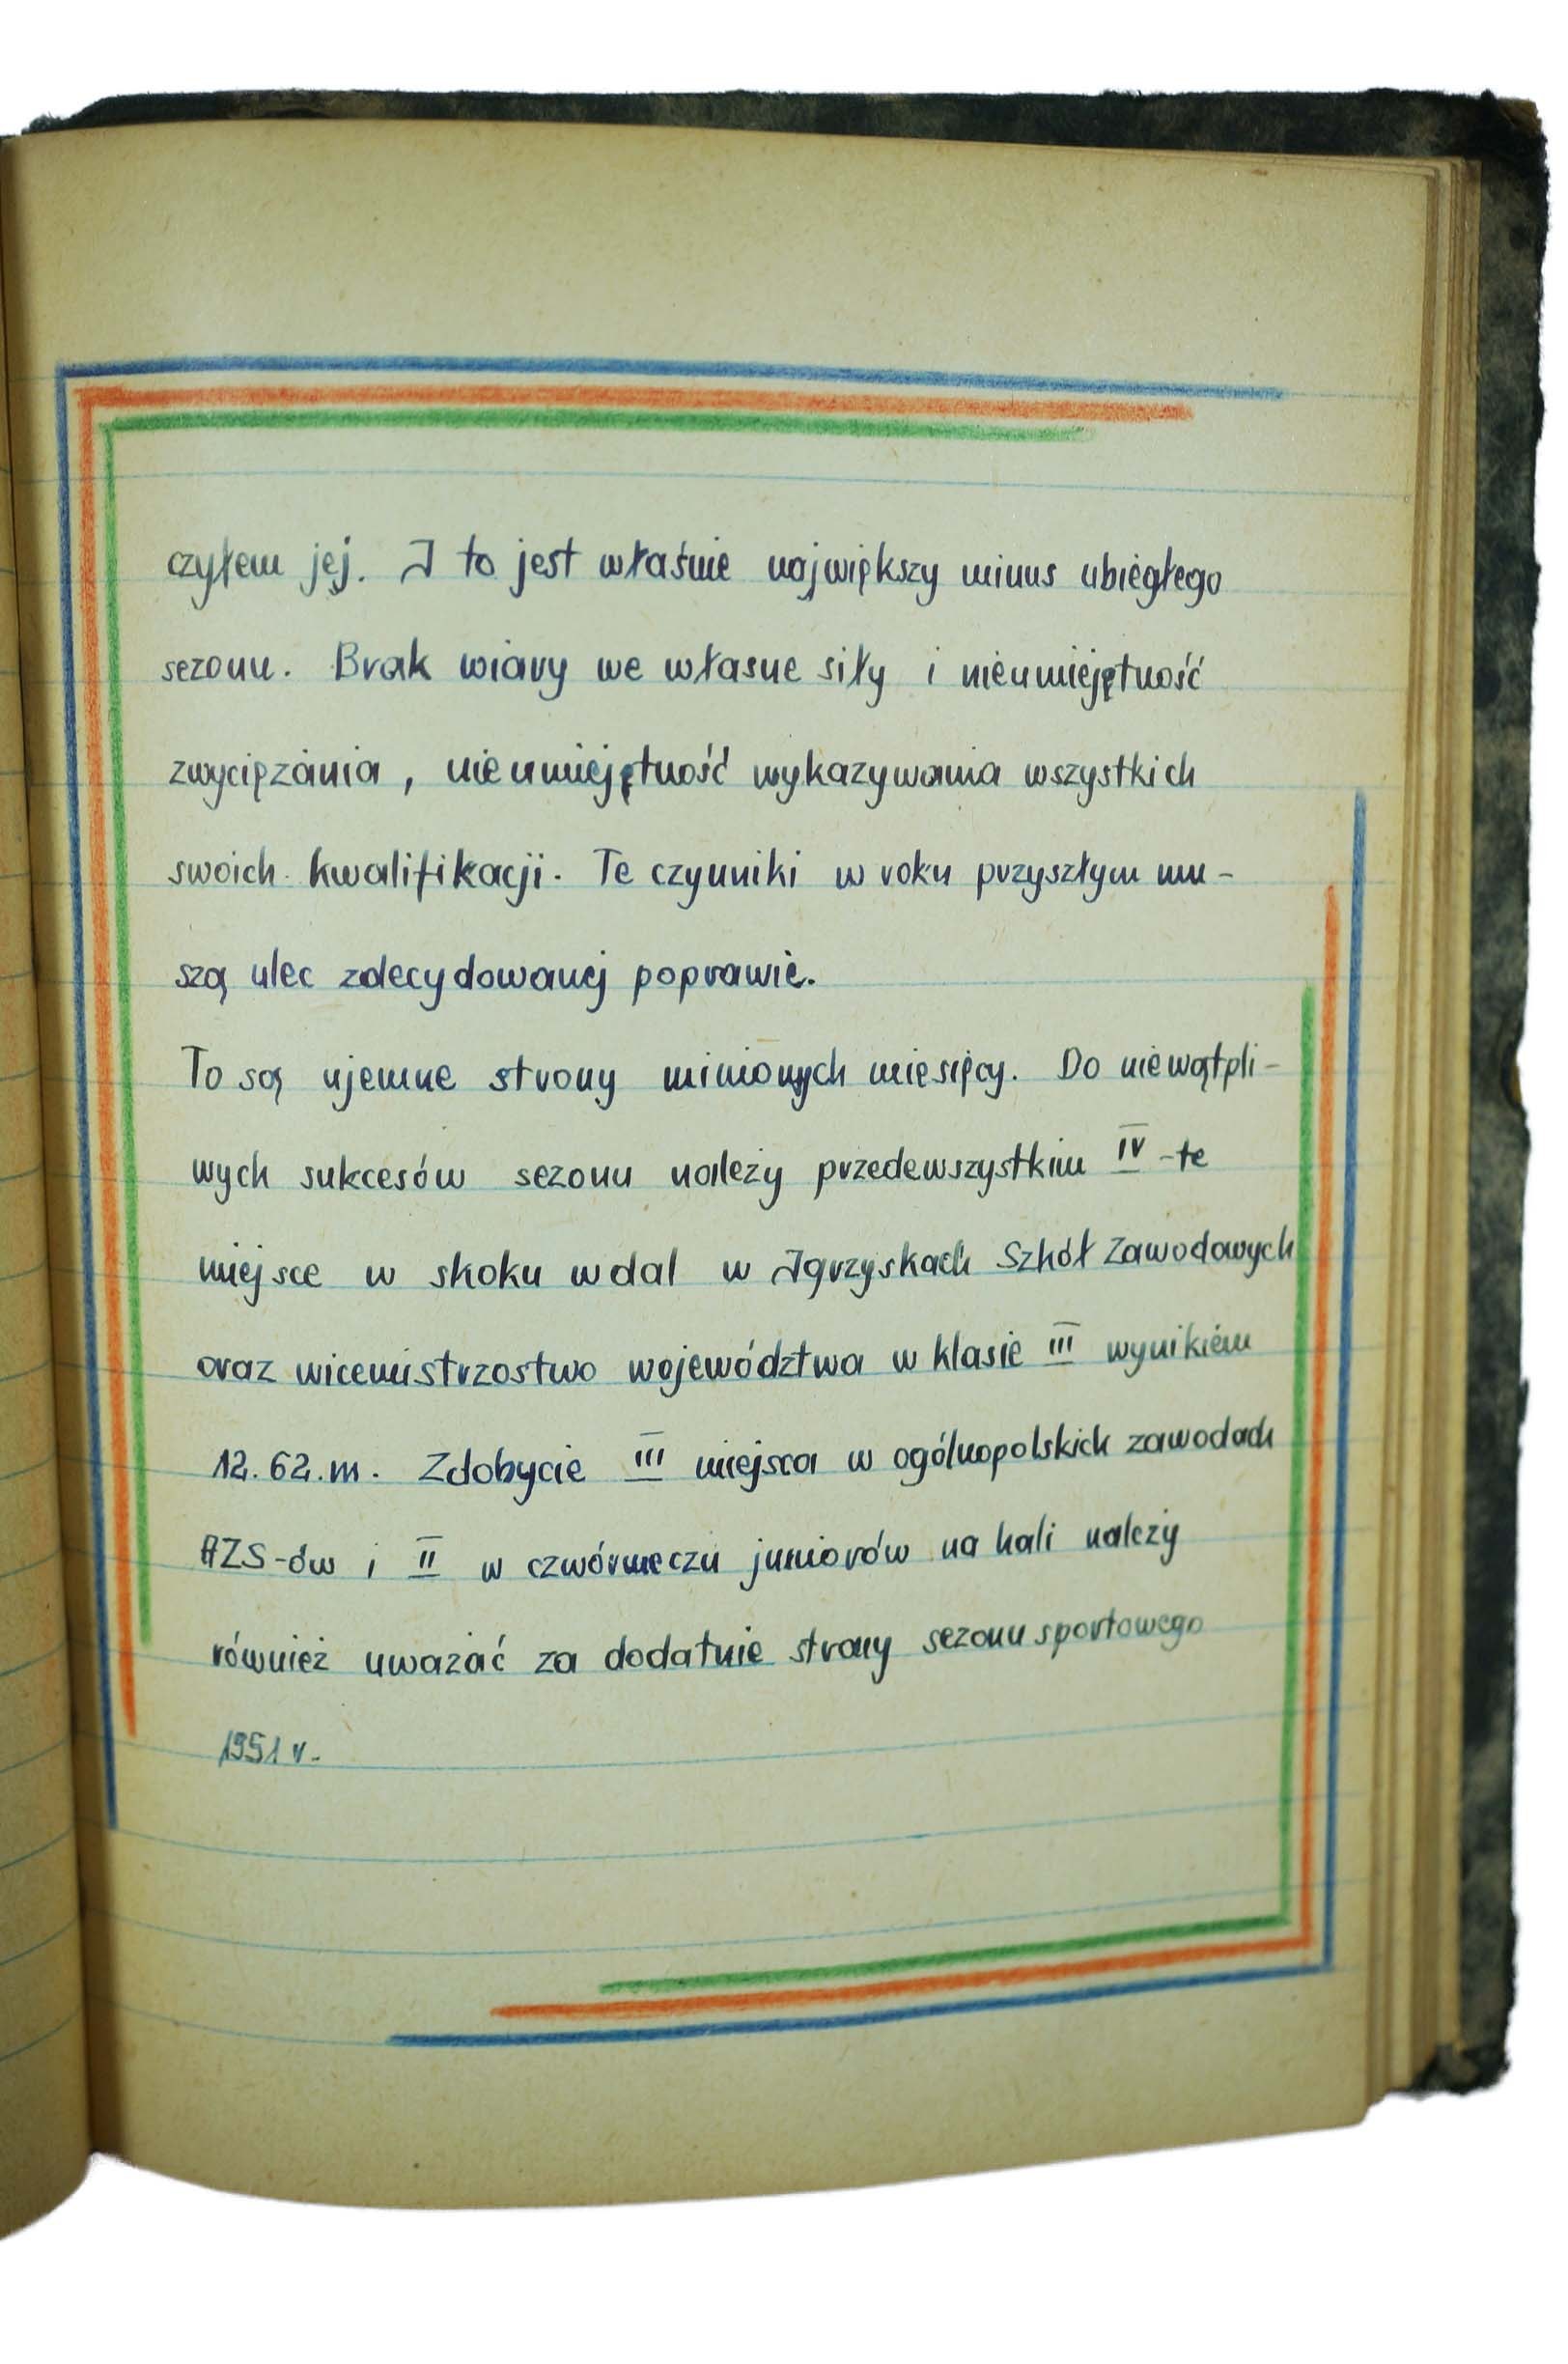 czyłem jej. I to jest właśnie największy minus ubiegłego
sezonu. Brak wiary we własne siły i nieumiejętność
zwyciężania, nieumiejętność wykazywania wszystkich
swoich kwalifikacji. Te czynniki w roku przyszłym mu-
szą ulec zdecydowanej poprawie.
To są ujemne strony minionych miesięcy. Do niewątpli-
wych sukcesów sezonu należy przedewszystkim IV-te
miejsce w skoku wdal w Igrzyskach Szkół Zawodowych
oraz wicemistrzostwo województwa w klasie III wynikiem
12.62.m. Zdobycie III miejsca w ogólnopolskich zawodach
AZS-ów i II w czwórmeczu juniorów na hali należy
również uważać za dodatnie strony sezonu sportowego
1951 r.